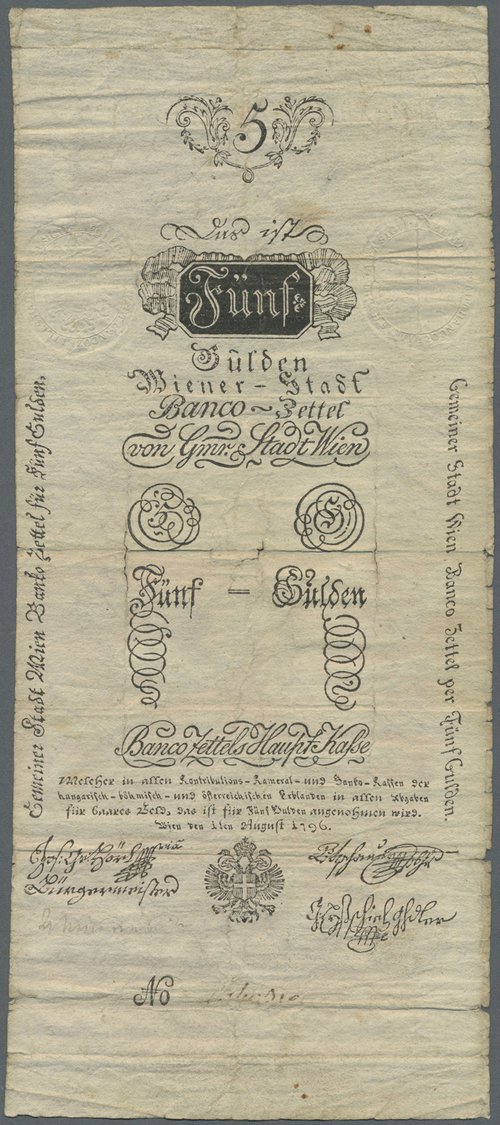 5
Das ist
Fünf
Gulden
Wiener-Stadt
Banco-Zettel
von Gmr. Stadt Wien
Gemeiner Stadt Wien Banko Zettel für Fünf Gulden.
Gemeiner Stadt Wien Banco Zettel per Fünf Gulden.
5 G
Fünf = Gulden
Banco Zettels Haupt Kasse
Welcher in allen Kontributions-Kameral-und Banko-Kassen der
hungarisch-böhmisch-und österreichischen Erblanden in allen Abgaben
für baares Geld, das ist für Fünf Gulden angenommen wird.
Wien den 1ten August 1796.
Bürgermeister
No